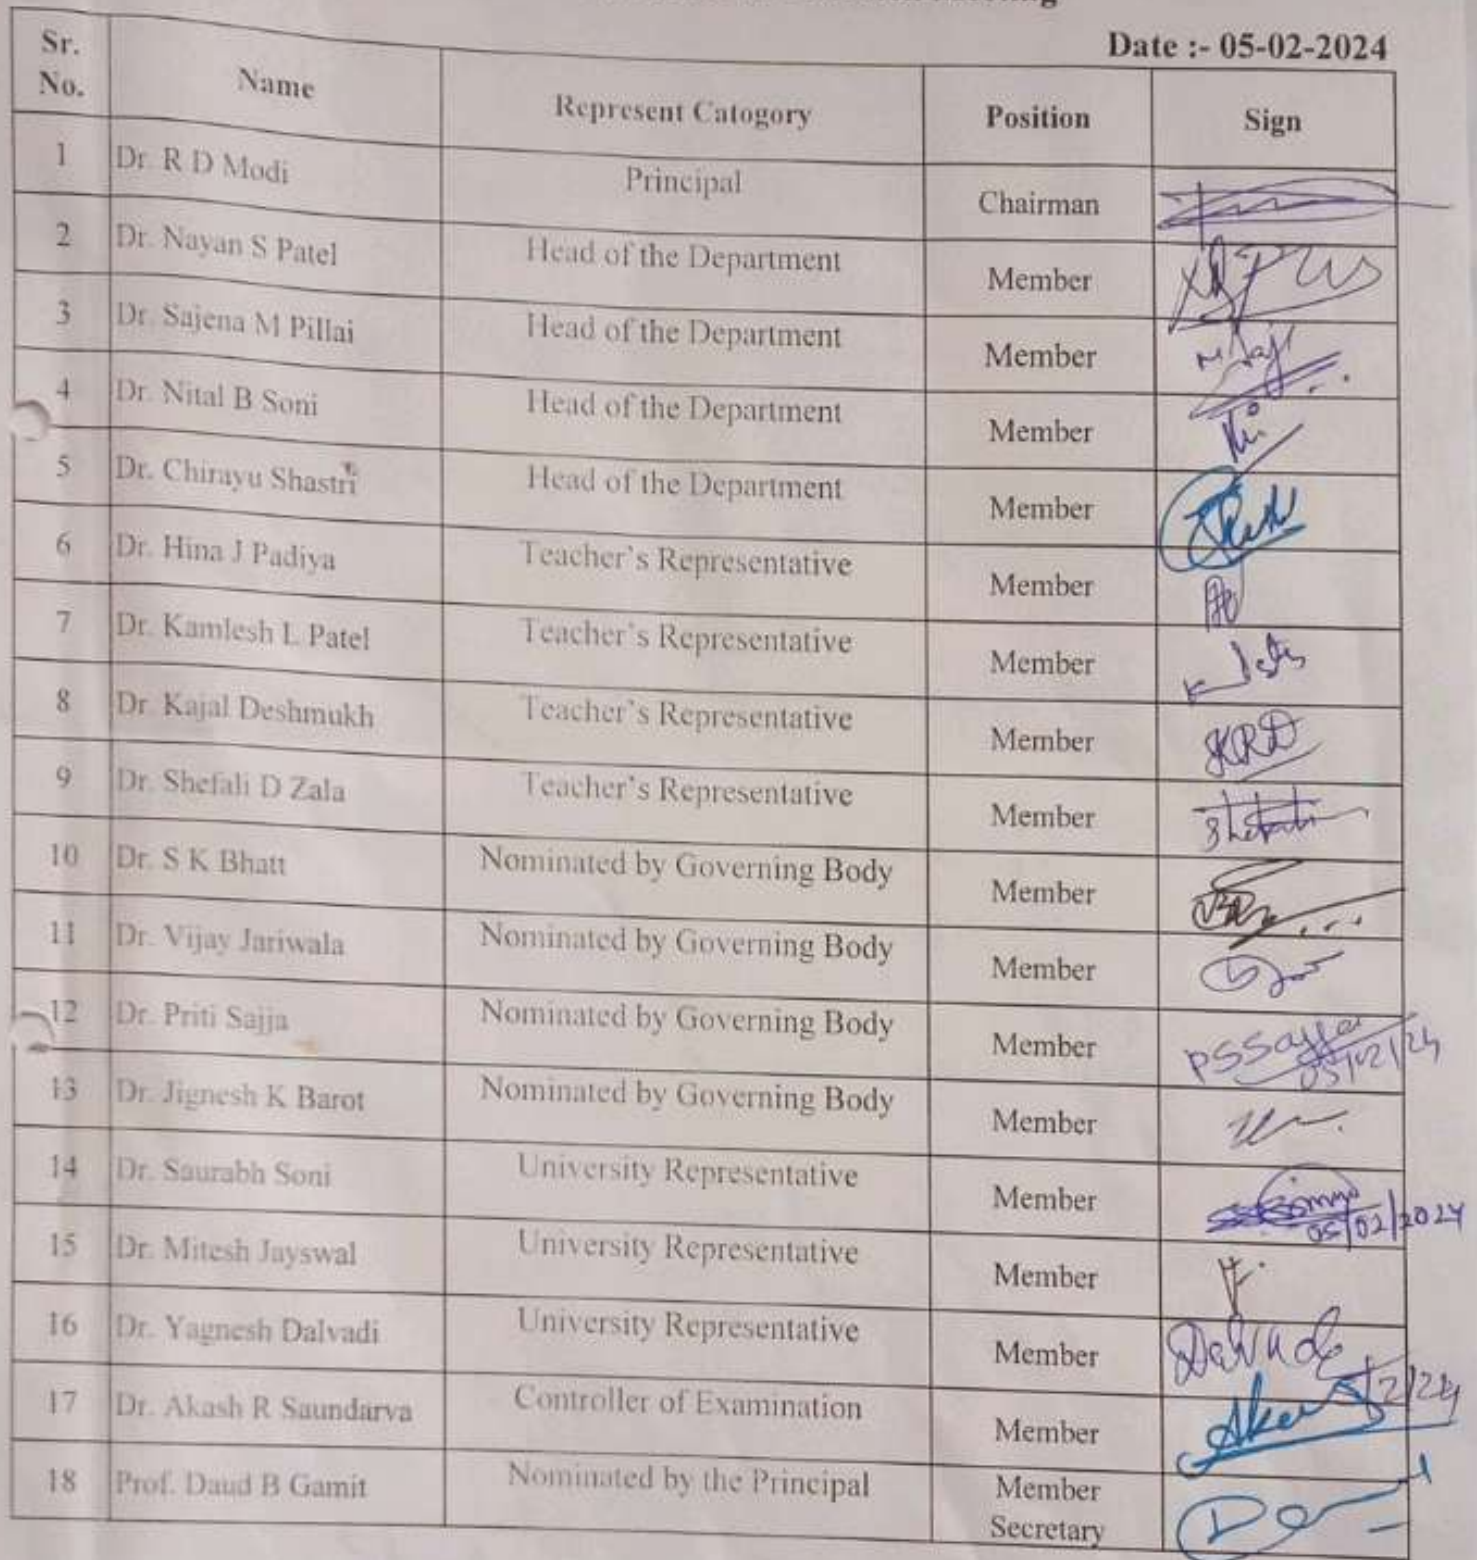 Date :- 05-02-2024
Sr. No. Name Represent Catogory Position Sign
1 Dr. R D Modi Principal Chairman
2 Dr. Nayan S Patel Head of the Department Member
3 Dr. Sajena M Pillai Head of the Department Member
4 Dr. Nital B Soni Head of the Department Member
5 Dr. Chirayu Shastri Head of the Department Member
6 Dr. Hina J Padiya Teacher's Representative Member
7 Dr. Kamlesh L Patel Teacher's Representative Member
8 Dr. Kajal Deshmukh Teacher's Representative Member KRD
9 Dr. Shefali D Zala Teacher's Representative Member
10 Dr. S K Bhatt Nominated by Governing Body Member
11 Dr. Vijay Jariwala Nominated by Governing Body Member
12 Dr. Priti Sajja Nominated by Governing Body Member PSSajja 05/02/24
13 Dr. Jignesh K Barot Nominated by Governing Body Member
14 Dr. Saurabh Soni University Representative Member 05/02/2024
15 Dr. Mitesh Jayswal University Representative Member
16 Dr. Yagnesh Dalvadi University Representative Member
17 Dr. Akash R Saundarva Controller of Examination Member
18 Prof. Daud B Gamit Nominated by the Principal Member Secretary